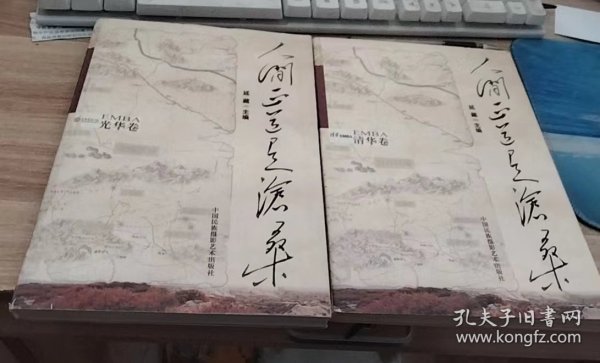 人间正道是沧桑
延藏 主编
EMBA
光华卷
中国民族摄影艺术出版社
人间正道是沧桑
延藏 主编
EMBA
清华卷
中国民族摄影艺术出版社
孔夫子旧书网
www.kongfz.com